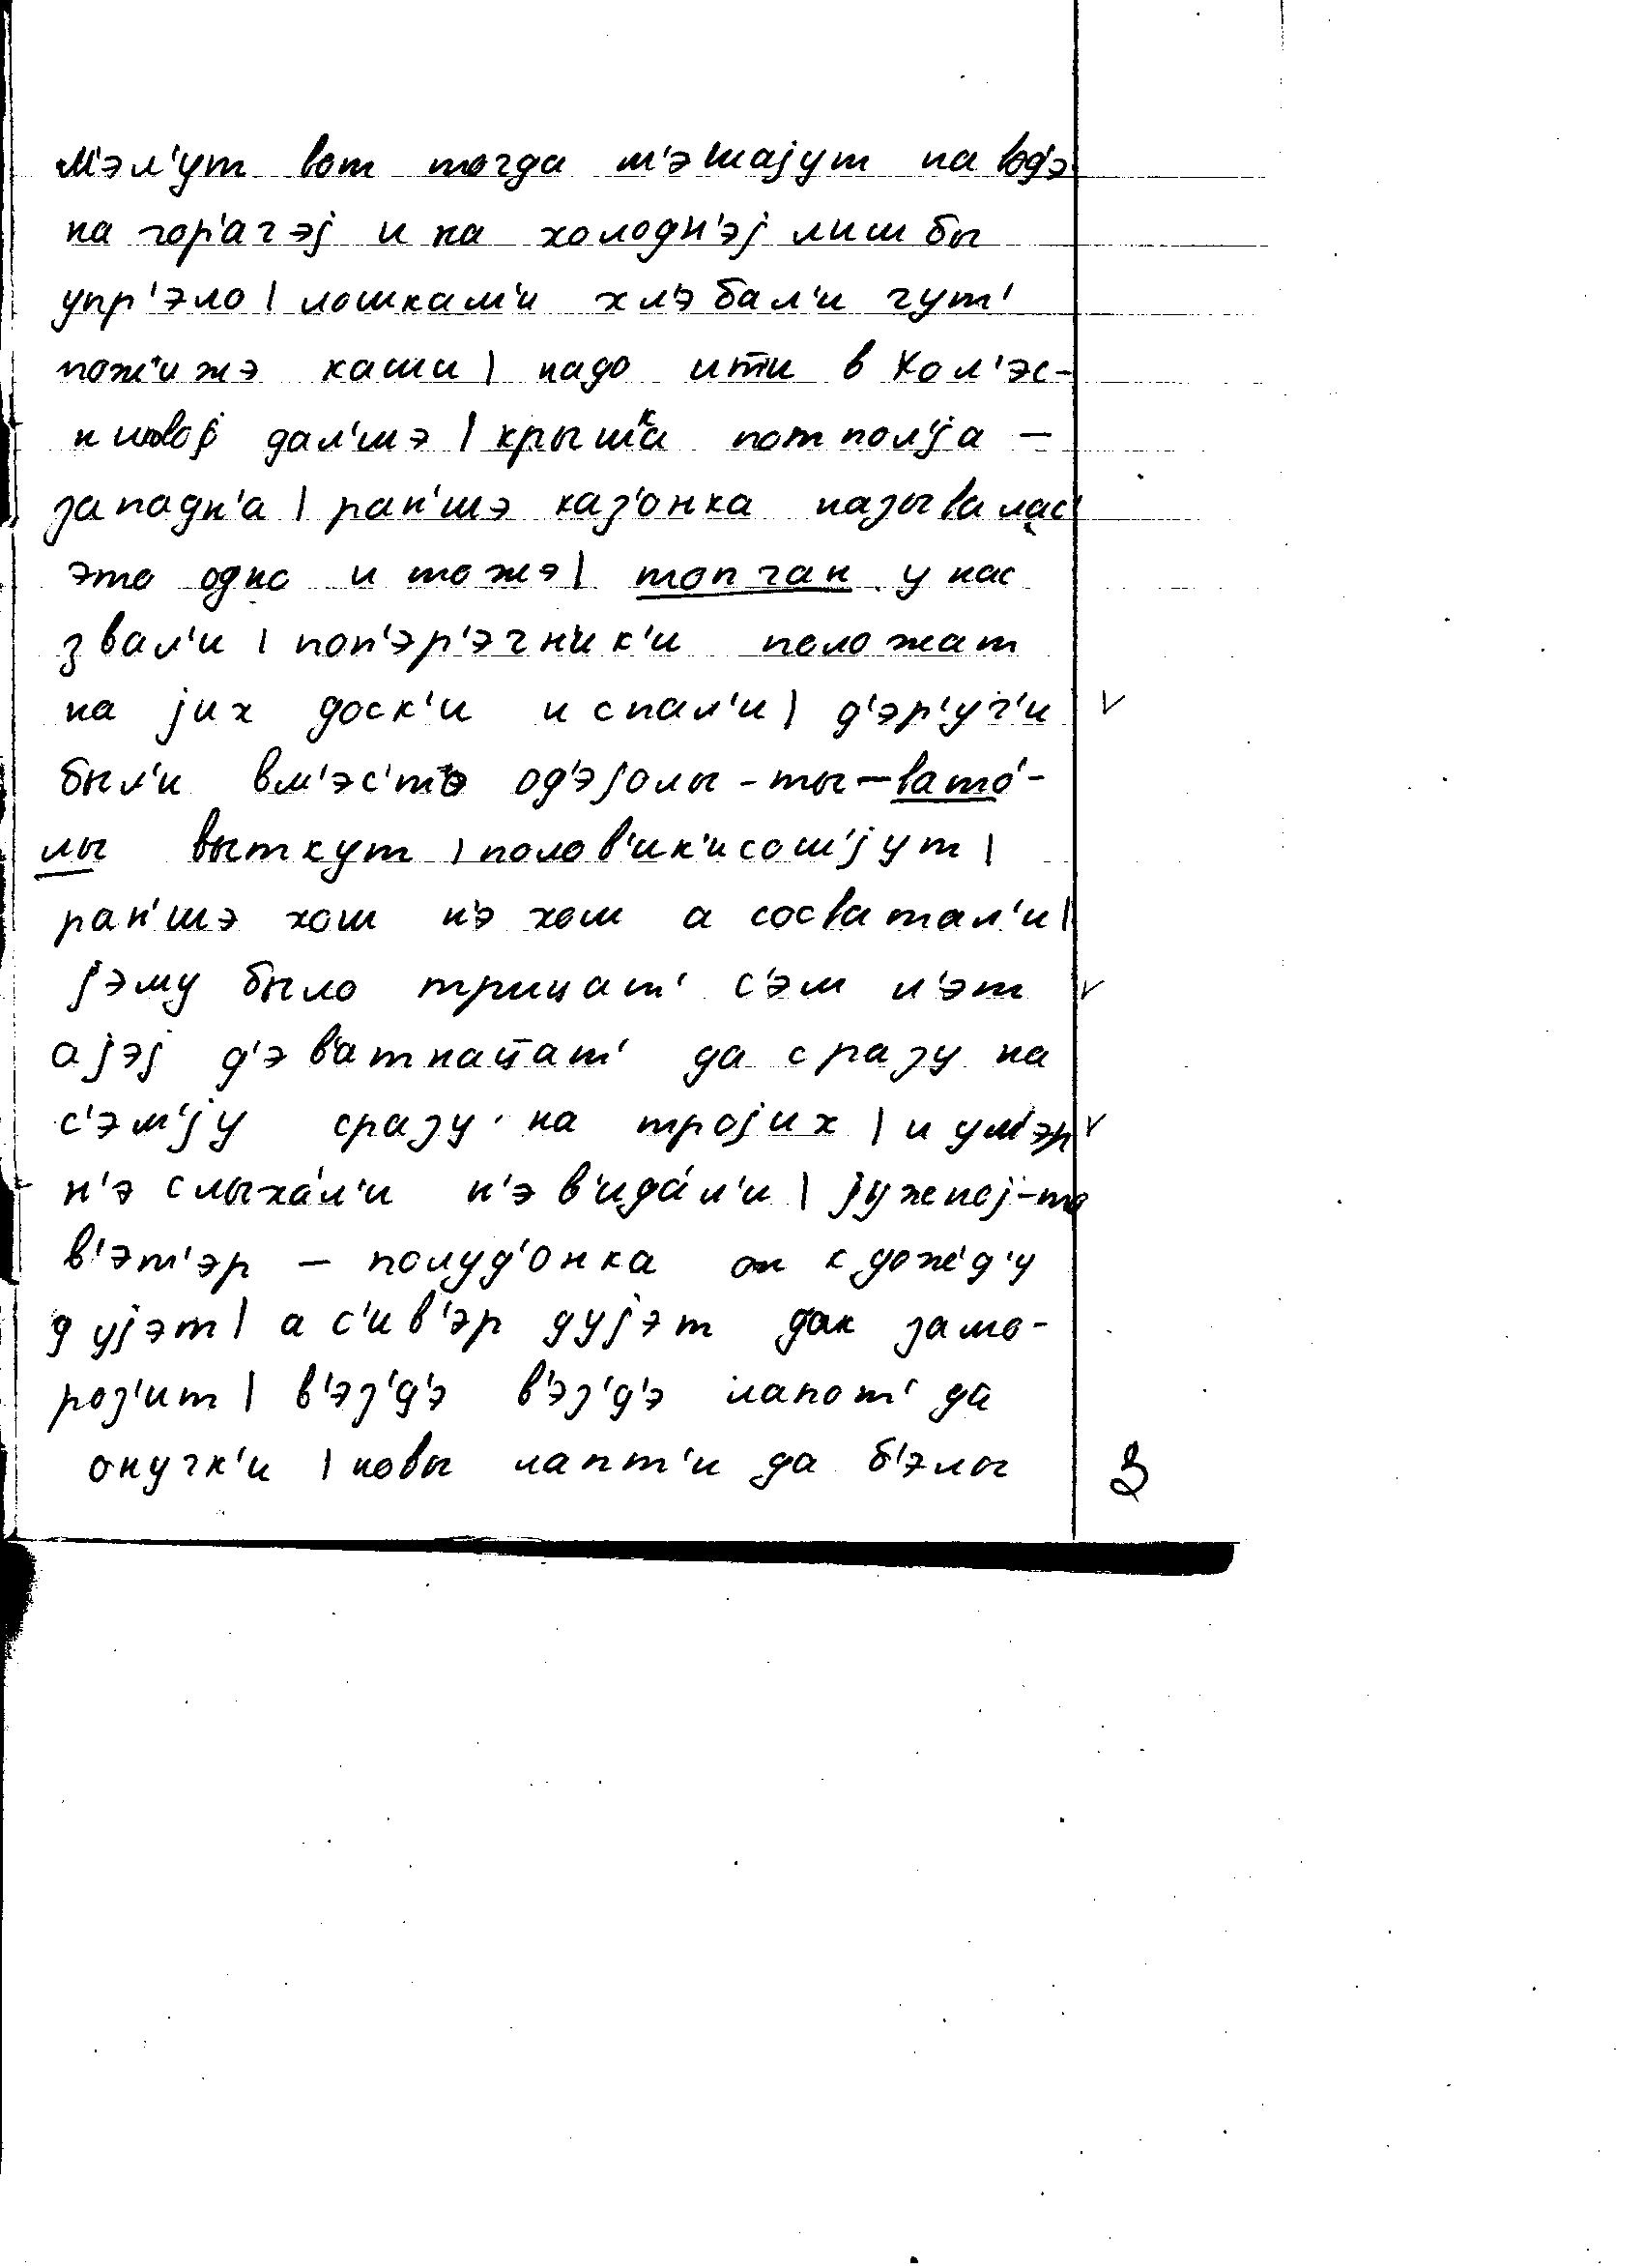 м'эл'ут вот тогда м'эшаjут на вод'э
на гор'ачэj и на холодн'эj лиш бы
упр'эло | лошкам'и хл'эбал'и чут'
пож'ижэ каши | надо ити в Кол'эс-
никовоj дал'шэ | крышка потпол'jа —
западн'а | ран'шэ каз'онка называлас'
это одно и тожэ | топчан у нас
звал'и | поп'эр'эчн'ик'и положат
на jих доск'и и спал'и | д'эр'уг'и ѵ
был'и вм'эс'то од'эjолы-ты — вато́-
лы выткут | полов'ик'и сош'jут |
ран'шэ хош н'э хош а сосватал'и |
jэму было трицат' с'эм л'эт ѵ
а jэj д'эв'атнац̄ат' да сразу на
с'эм'jу сразу на троjих | и ум'эр ѵ
н'э слыха́л'и н'э в'ида́л'и | jужноj-то
в'эт'эр — полуд'онка он к дож'д'у
дуjэт | а с'ив'эр дуjэт дак замо-
роз'ит | в'эз'д'э в'эз'д'э лапот' да
онучк'и | новы лапт'и да б'элы
3